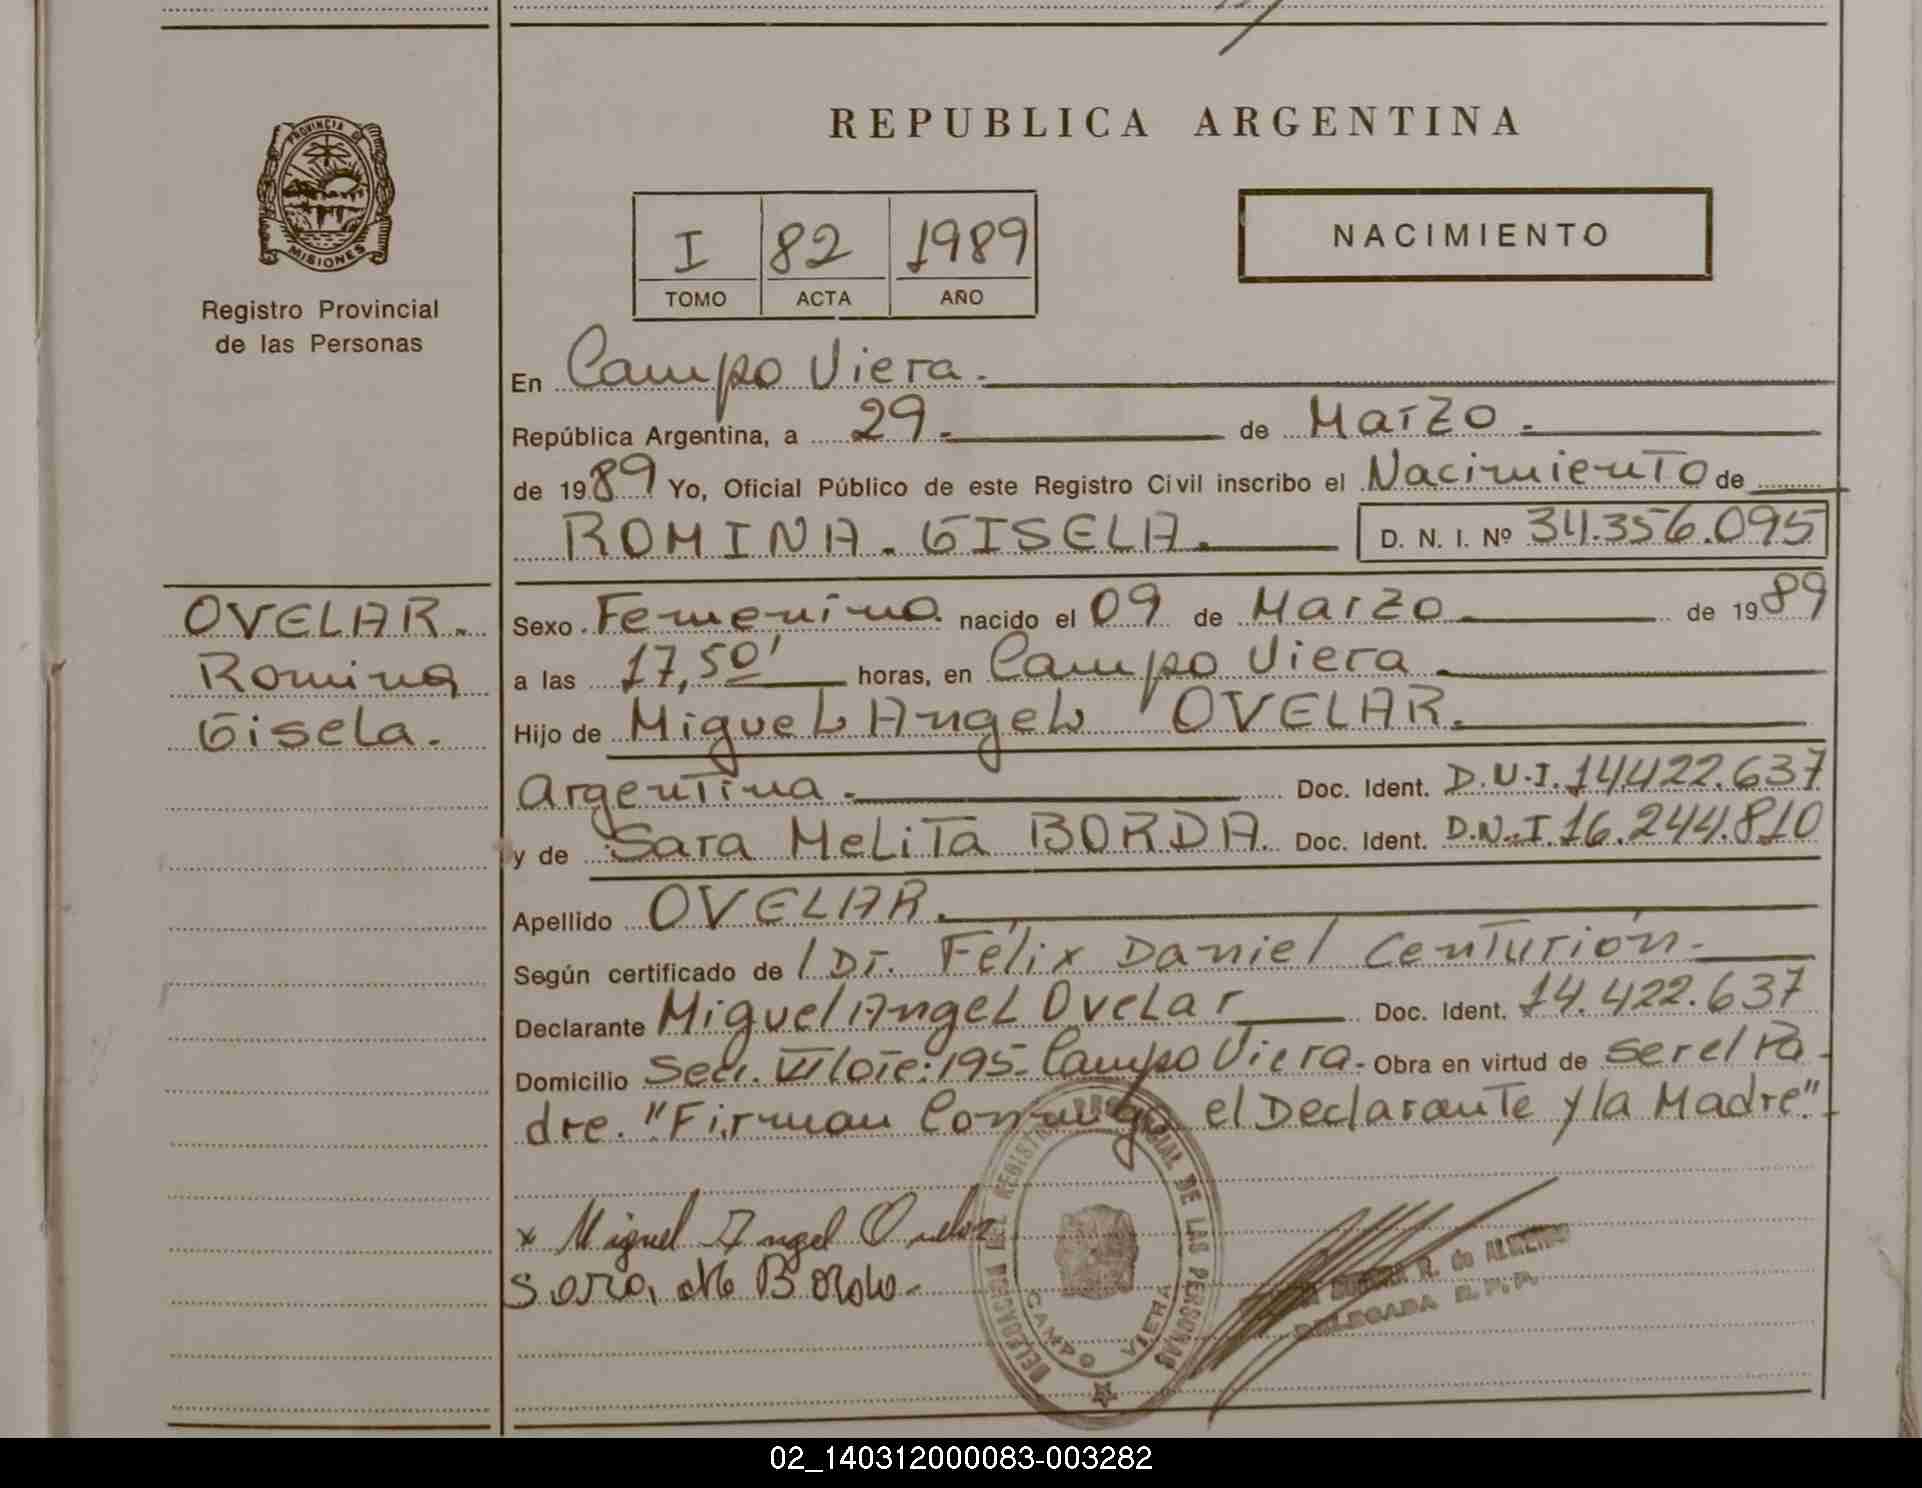 REPUBLICA ARGENTINA
PROVINCIA DE
MISIONES
Registro Provincial
de las Personas
I 82 1989
TOMO ACTA AÑO
NACIMIENTO
En Campo Viera.
República Argentina, a 29. de Marzo.
de 1989 Yo, Oficial Público de este Registro Civil inscribo el Nacimiento de
ROMINA. GISELA. D. N. I. Nº 34.356.095
OVELAR.
Romina
Gisela.
Sexo Femenino nacido el 09 de Marzo de 1989
a las 17,50' horas, en Campo Viera
Hijo de Miguel Angel OVELAR.
Argentina. Doc. Ident. D.N.I. 14422.637
y de Sara Melita BORDA. Doc. Ident. D.N.I. 16.244.810
Apellido OVELAR.
Según certificado de / Dr. Félix Daniel Centurión.
Declarante Miguel Angel Ovelar Doc. Ident. 14.422.637
Domicilio Secc. VI lote: 195- Campo Viera. Obra en virtud de ser el Pa-
dre. "Firman Conmigo el Declarante y la Madre".
x Miguel Angel Ovelar
Sara de Borda.
REGISTRO PROVINCIAL DE LAS PERSONAS
CAMPO VIERA
R. de
DELEGADA R.P.P.
02_140312000083-003282